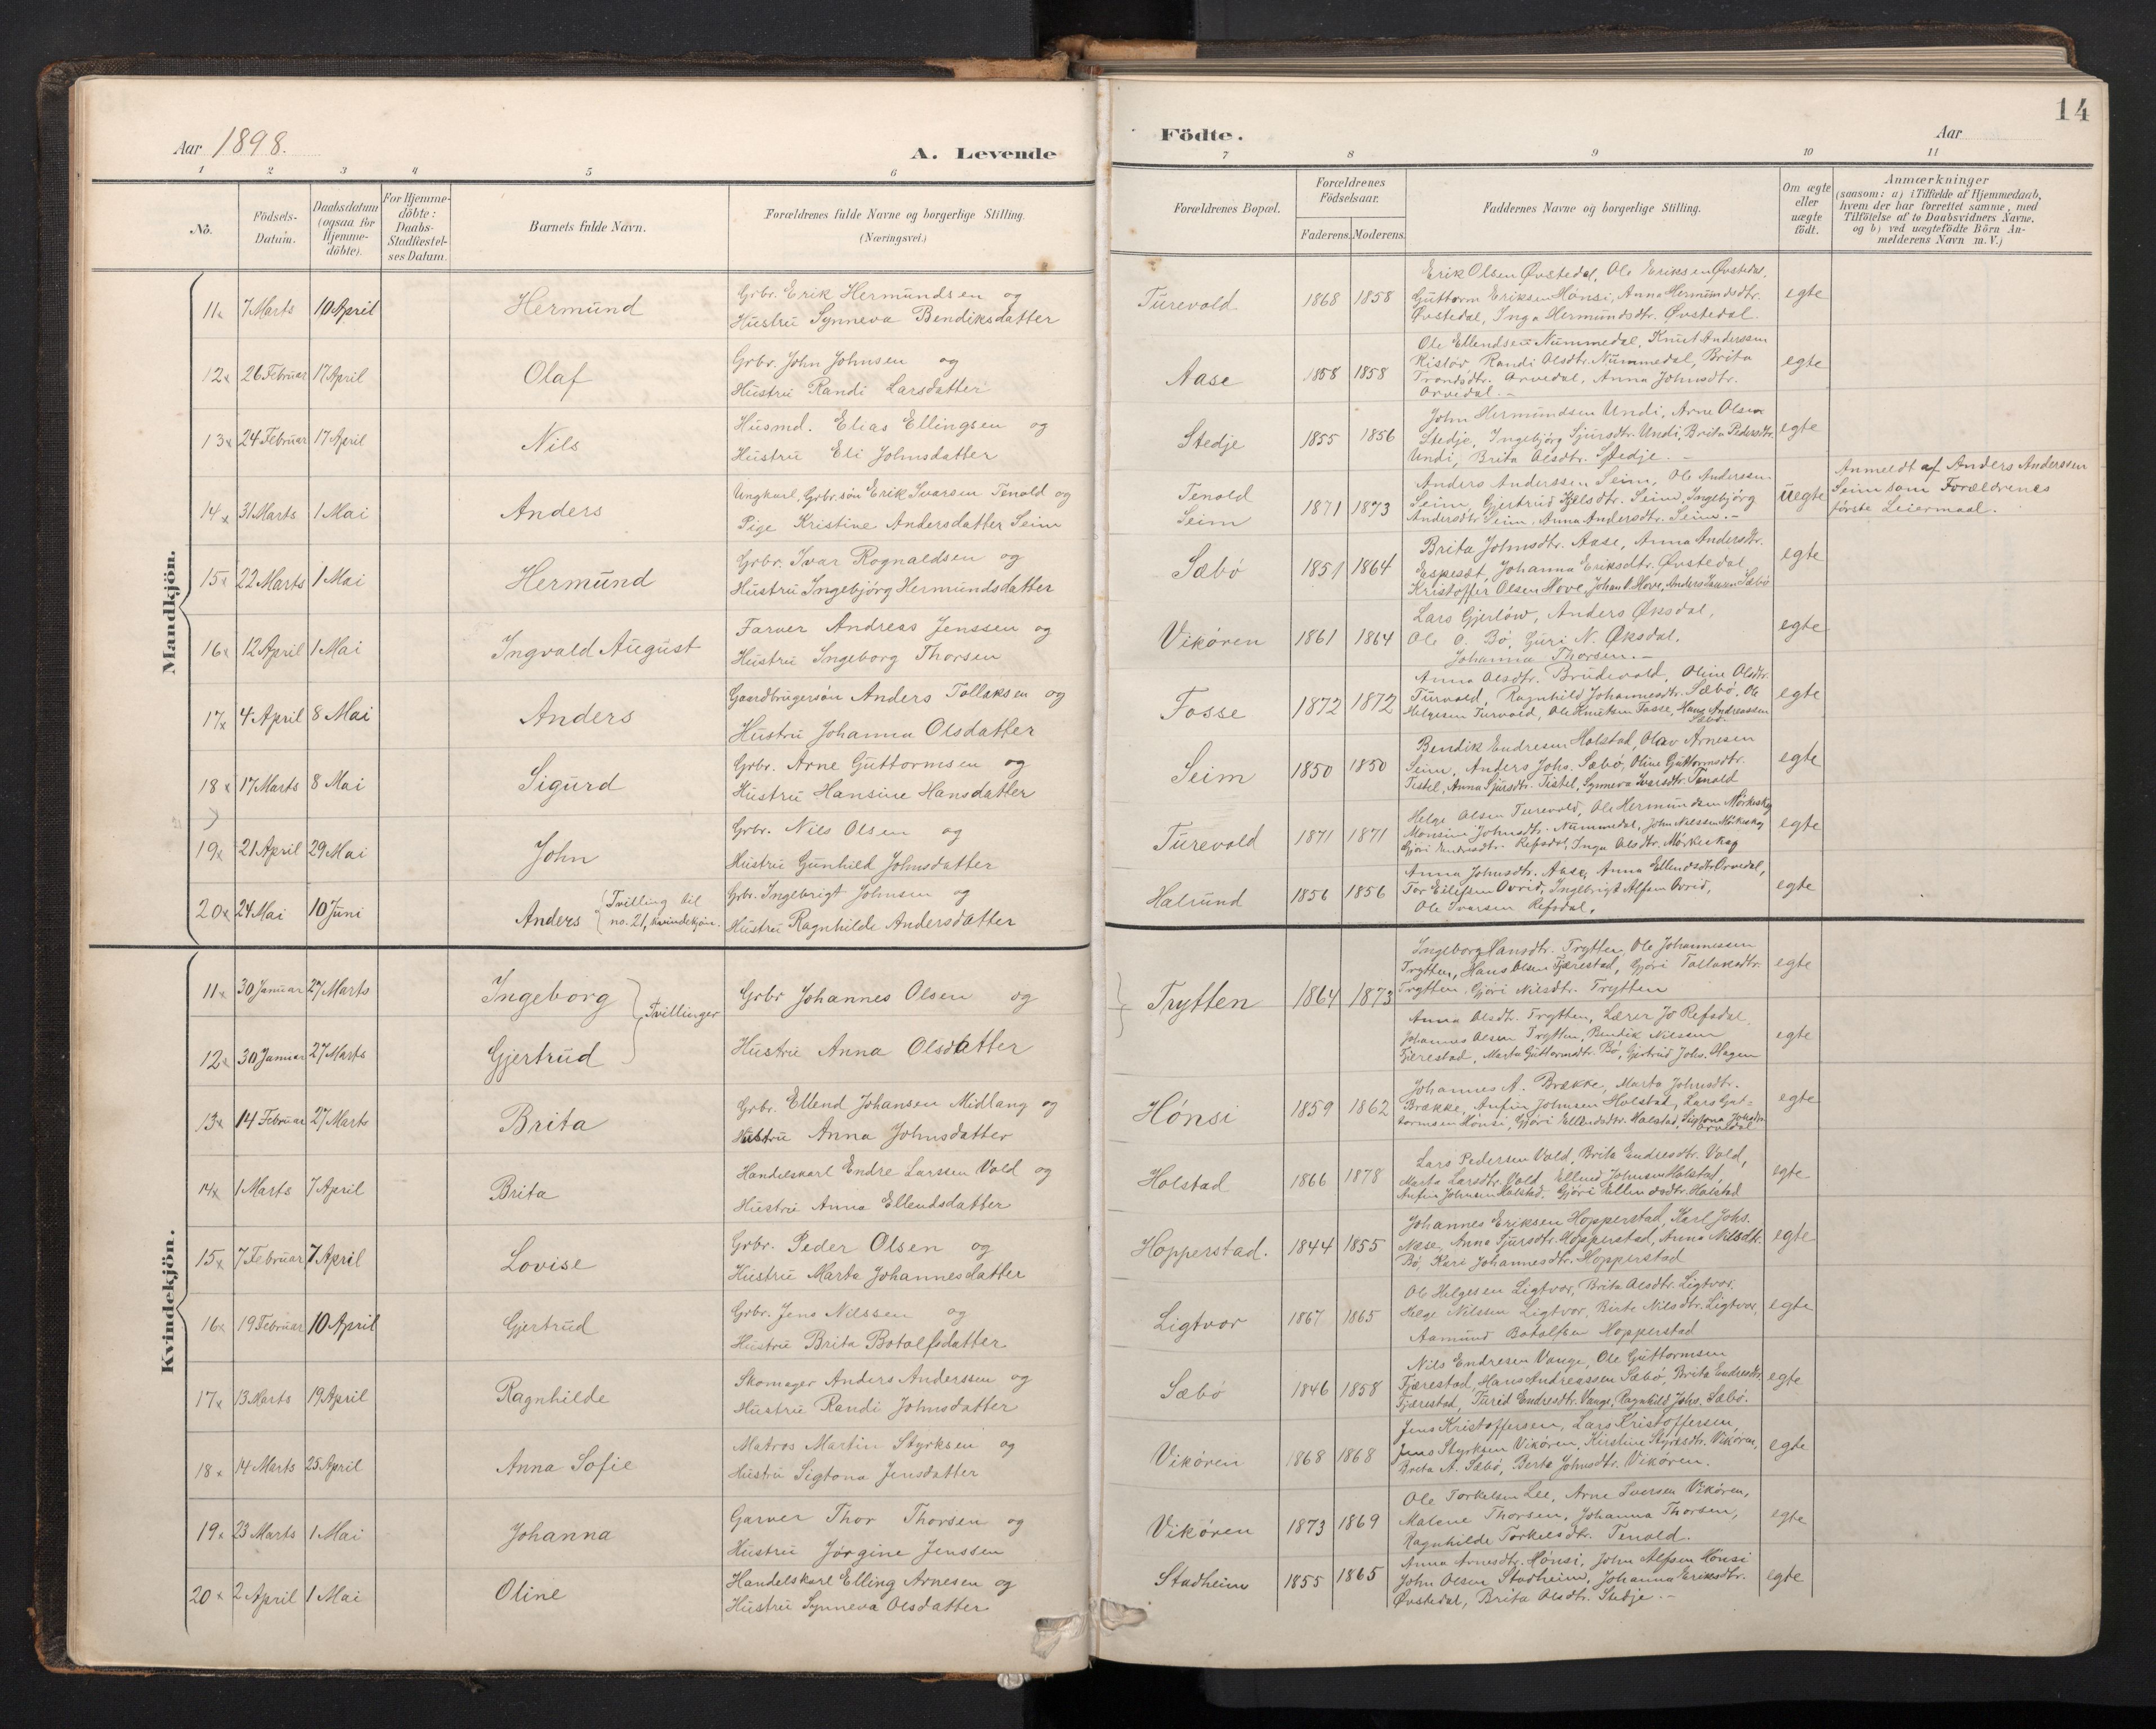 14
Aar 1898.
A. Levende
Födte.
Aar
1 2 3 4 5 6 7 8 9 10 11
No.
Födsels-
Datum.
Daabsdatum
(ogsaa för
Hjemme-
döbte).
For Hjemme-
döbte:
Daabs-
Stadfæstel-
ses Datum.
Barnets fulde Navn.
Forældrenes fulde Navne og borgerlige Stilling.
(Næringsvei.)
Forældrenes Bopæl.
Forældrenes
Födselsaar.
Faderens. Moderens.
Faddernes Navne og borgerlige Stilling.
Om ægte
eller
uægte
födt.
Anmærkninger
(saasom: a) i Tilfælde af Hjemmedaab,
hvem der har forrettet samme, med
Tilföielse af to Daabsvidners Navne,
og b) ved uægtefödte Börn An-
melderens Navn m. V.)
Mandkjön.
11x 7 Marts 10 April Hermund
Grbr. Erik Hermundsen og
Hustru Synneva Bendiksdatter
Turevold 1868 1858
Erik Olsen Øvstedal, Ole Eriksen Øvstedal,
Guttorm Eriksen Hönsi, Anna Hermundsdtr.
Øvstedal, Inga Hermundsdtr. Øvstedal.
egte
12x 26 Februar 17 April Olaf
Grbr. John Johnsen og
Hustru Randi Larsdatter
Aase 1858 1858
Ole Ellendsen Nummedal, Knut Anderssen
Ristör, Randi Olsdtr. Nummedal, Brita
Trondsdtr. Orvedal, Anna Johnsdtr.
Orvedal. -
egte
13x 24 Februar 17 April Nils
Husmd. Elias Ellingsen og
Hustru Eli Johnsdatter
Stedje 1855 1856
John Hermundsen Undi, Arne Olsen
Stedje, Ingebjörg Sjursdtr. Undi, Brita Pedersdtr.
Undi, Brita Olsdtr. Stedje. -
egte
14x 31 Marts 1 Mai Anders
Ungkarl, Grbr. sön Erik Ivarsen Tenold og
Pige Kristine Andersdatter Seim
Tenold
Seim 1871 1873
Anders Anderssen Seim, Ole Anderssen
Seim, Gjertrud Kjelsdtr. Seim, Ingebjörg
Andersdtr. Seim, Anna Andersdtr. Seim. -
uegte
Anmeldt af Anders Anderssen
Seim som Forældrenes
förste Leiermaal.
15x 22 Marts 1 Mai Hermund
Grbr. Ivar Rognaldsen og
Hustru Ingebjörg Hermundsdatter
Sæbö 1851 1864
Brita Johnsdtr. Aase, Anna Andersdtr.
Espesdt, Johanna Eriksdtr. Øvstedal
Kristoffer Olsen Hove, Johan O. Hove, Anders Sæbö
egte
16x 12 April 1 Mai Ingvald August
Farver Andreas Jenssen og
Hustru Ingeborg Thorsen
Vikören 1861 1864
Lars Gjerlöw, Anders Øksdal,
Ole O. Bö, Guri N. Øksdal,
Johanna Thorsen. -
egte
17x 4 April 8 Mai Anders
Gaardbrugersön Anders Tollaksen og
Hustru Johanna Olsdatter
Fosse 1872 1872
Anna Olsdtr. Brudevold, Oline Olsdtr.
Turvold, Ragnhild Johannesdtr. Sæbö, Ole
Helgesen Turvold, Ole Knutsen Fosse, Hans Andreassen
Sæbö.
egte
18x 17 Marts 8 Mai Sigurd
Grbr. Arne Guttormsen og
Hustru Hansine Hansdatter
Seim 1850 1850
Bendik Endresen Holstad, Olav Arnesen
Seim, Anders Johs. Sæbö, Oline Guttormsdtr.
Tistel, Anna Sjursdtr. Tistel, Synneva Ivarsdtr. Tenold
egte
19x 21 April 29 Mai John
Grbr. Nils Olsen og
Hustru Gunhild Johnsdatter
Turevold 1871 1871
Helge Olsen Turevold, Ole Hermundsen Mörkeskog
Monsine Johnsdtr. Nummedal, John Nilssen Mörkeskog
Gjöri Endresdtr. Refsdal, Inga Olsdtr. Mörkeskog
egte
20x 24 Mai 10 Juni Anders (Tvilling til
no. 21, kvindekjön.
Grbr. Ingebrigt Johnsen og
Hustru Ragnhilde Andersdatter
Halsund 1856 1856
Anna Johnsdtr. Aase, Anna Ellendsdtr Orvedal,
Tor Eilifsen Ovrid, Ingebrigt Alfsen Ovrid,
Ole Ivarsen Refsdal.
egte
Kvindekjön.
11x 30 Januar 27 Marts Ingeborg
Tvillinger
Grbr Johannes Olsen og
Trytten 1864 1873
Ingeborg Hansdtr. Trytten, Ole Johannessen
Trytten, Hans Olsen Fjærestad, Gjöri Tollaksdtr.
Trytten, Gjöri Nilsdtr. Trytten
egte
12x 30 Januar 27 Marts Gjertrud
Hustru Anna Olsdatter
Anna Olsdtr. Trytten, Lærer Jo Refsdal,
Johannes Olsen Trytten, Bendik Nilssen
Fjærestad, Marta Guttormsdtr. Bö, Gjertrud Johs. Hagen
egte
13x 14 Februar 27 Marts Brita
Grbr. Ellend Johansen Midlang og
Hustru Anna Johnsdatter
Hönsi 1859 1862
Johannes A. Brække, Marta Johnsdtr.
Brække, Anfin Johnsen Holstad, Lars Gut-
tormsen Hönsi, Gjöri Ellendsdtr. Holstad, Sigtona Johsdtr.
Orvedal
egte
14x 1 Marts 7 April Brita
Handelskarl Endre Larssen Vold og
Hustru Anna Ellendsdatter
Holstad 1866 1878
Lars Pedersen Vold, Brita Endresdtr. Vold,
Marta Larsdtr. Vold, Ellend Johnsen Holstad,
Anfin Johnsen Holstad, Gjöri Ellendsdtr. Holstad
egte
15x 7 Februar 7 April Lovise
Grbr. Peder Olsen og
Hustru Marta Johannesdatter
Hopperstad. 1844 1855
Johannes Eriksen Hopperstad, Karl Johs.
Næse, Anna Sjursdtr. Hopperstad, Anna Nilsdtr.
Bö, Kari Johannesdtr. Hopperstad
egte
16x 19 Februar 10 April Gjertrud
Grbr. Jens Nilssen og
Hustru Brita Botolfsdatter
Ligtvor 1867 1865
Ole Helgesen Ligtvor, Brita Olsdtr. Ligtvor,
Helge Nilssen Ligtvor, Birte Nilsdtr. Ligtvor,
Aamund Botolfsen Hopperstad
egte
17x 13 Marts 19 April Ragnhilde
Skomager Anders Anderssen og
Hustru Randi Johnsdatter
Sæbö 1846 1858
Nils Endresen Vange, Ole Guttormsen
Fjærestad, Hans Andreassen Sæbö, Brita Endresdtr.
Fjærestad, Turid Endresdtr. Vange, Ragnhild Johs. Sæbö.
egte
18x 14 Marts 25 April Anna Sofie
Matros Martin Styrksen og
Hustru Sigtona Jensdatter
Vikören 1868 1868
Jens Kristoffersen, Lars Kristoffersen,
Jens Styrksen Vikören, Kirstine Styrksdtr. Vikören,
Brita A. Sæbö, Berta Johnsdtr. Vikören.
egte
19x 23 Marts 1 Mai Johanna
Garver Thor Thorsen og
Hustru Jörgine Jenssen
Vikören 1873 1869
Ole Torkelsen Lee, Arne Iversen Vikören,
Malene Thorsen, Johanna Thorsen,
Ragnhilde Torkelsdtr. Tenold.
egte
20x 2 April 1 Mai Oline
Handelskarl Elling Arnesen og
Hustru Synneva Olsdatter
Stadheim 1855 1865
Anna Arnesdtr. Hönsi, John Alfsen Hönsi
John Olsen Stadheim, Johanna Eriksdtr.
Øvstedal, Brita Olsdtr. Stedje. -
egte